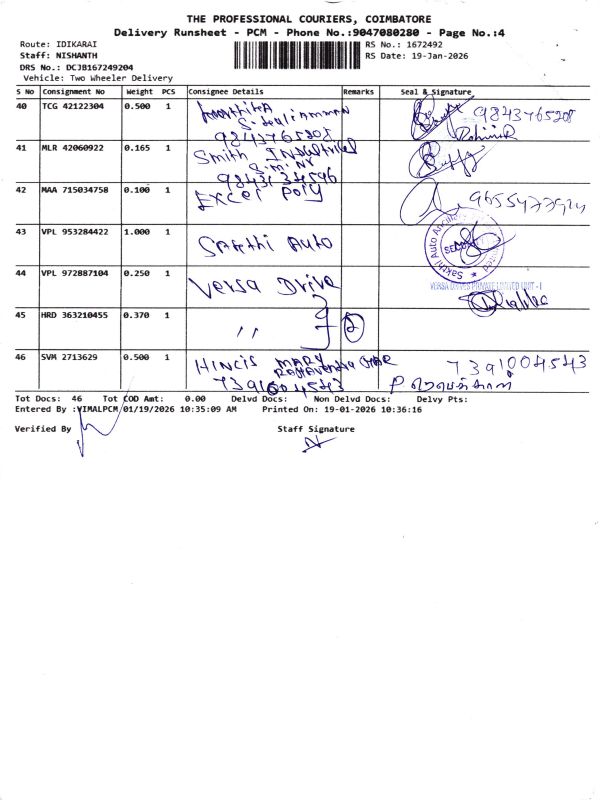 THE PROFESSIONAL COURIERS, COIMBATORE
Delivery Runsheet - PCM - Phone No.:9047080280 - Page No.:4
Route: IDIKARAI
RS No.: 1672492
Staff: NISHANTH
RS Date: 19-Jan-2026
DRS No.: DCJB167249204
Vehicle: Two Wheeler Delivery
S No Consignment No Weight PCS Consignee Details Remarks Seal & Signature
40 TCG 42122304 0.500 1
9843765208 9843765208
41 MLR 42060922 0.165 1 Smith
42 MAA 715034758 0.100 1 Excel Poly
43 VPL 953284422 1.000 1 Sakthi Auto
Sakthi Auto
44 VPL 972887104 0.250 1 Versa Drive
VERSA DRIVES PRIVATE LIMITED UNIT - I
45 HRD 363210455 0.370 1 " 2
46 SVM 2713629 0.500 1 MARY
7391004543 7391004543
Tot Docs: 46 Tot COD Amt: 0.00 Delvd Docs: Non Delvd Docs: Delvy Pts:
Entered By :VIMALPCM 01/19/2026 10:35:09 AM Printed On: 19-01-2026 10:36:16
Verified By Staff Signature